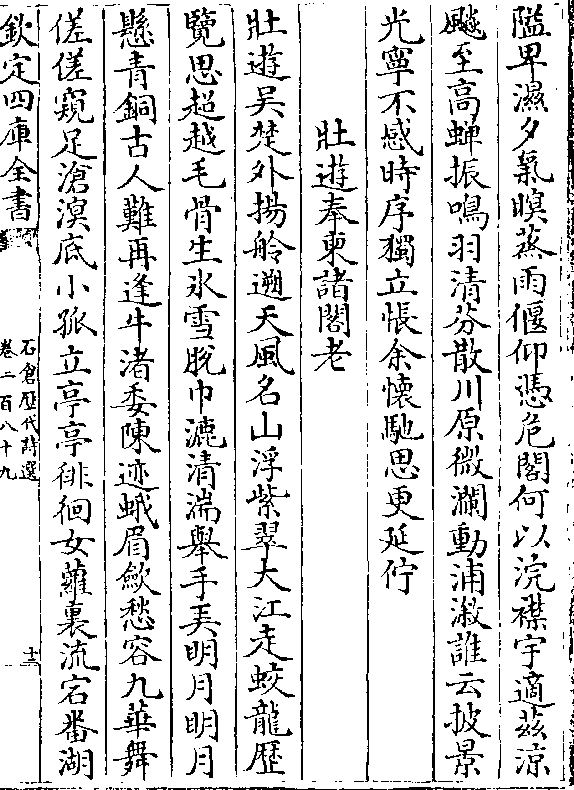 隘卑濕夕氣暝蒸雨偃仰憑危閣何以浣襟宇適茲涼
飈至高蟬振鳴羽清芬散川原微瀾動浦溆誰云披景
光寧不感時序獨立悵余懷馳思更延佇
壯遊奉柬諸閣老
壯遊吳楚外揚舲遡天風名山浮紫翠大江走蛟龍歴
覽思超越毛骨生氷雪脫巾漉清湍舉手弄明月明月
懸青銅古人難再逢牛渚委陳迹蛾眉歛愁容九華舞
傞傞窺足滄溟底小孤立亭亭徘徊女蘿裏流宕番湖
欽定四庫全書
石倉歴代詩選
卷二百八十九
十三